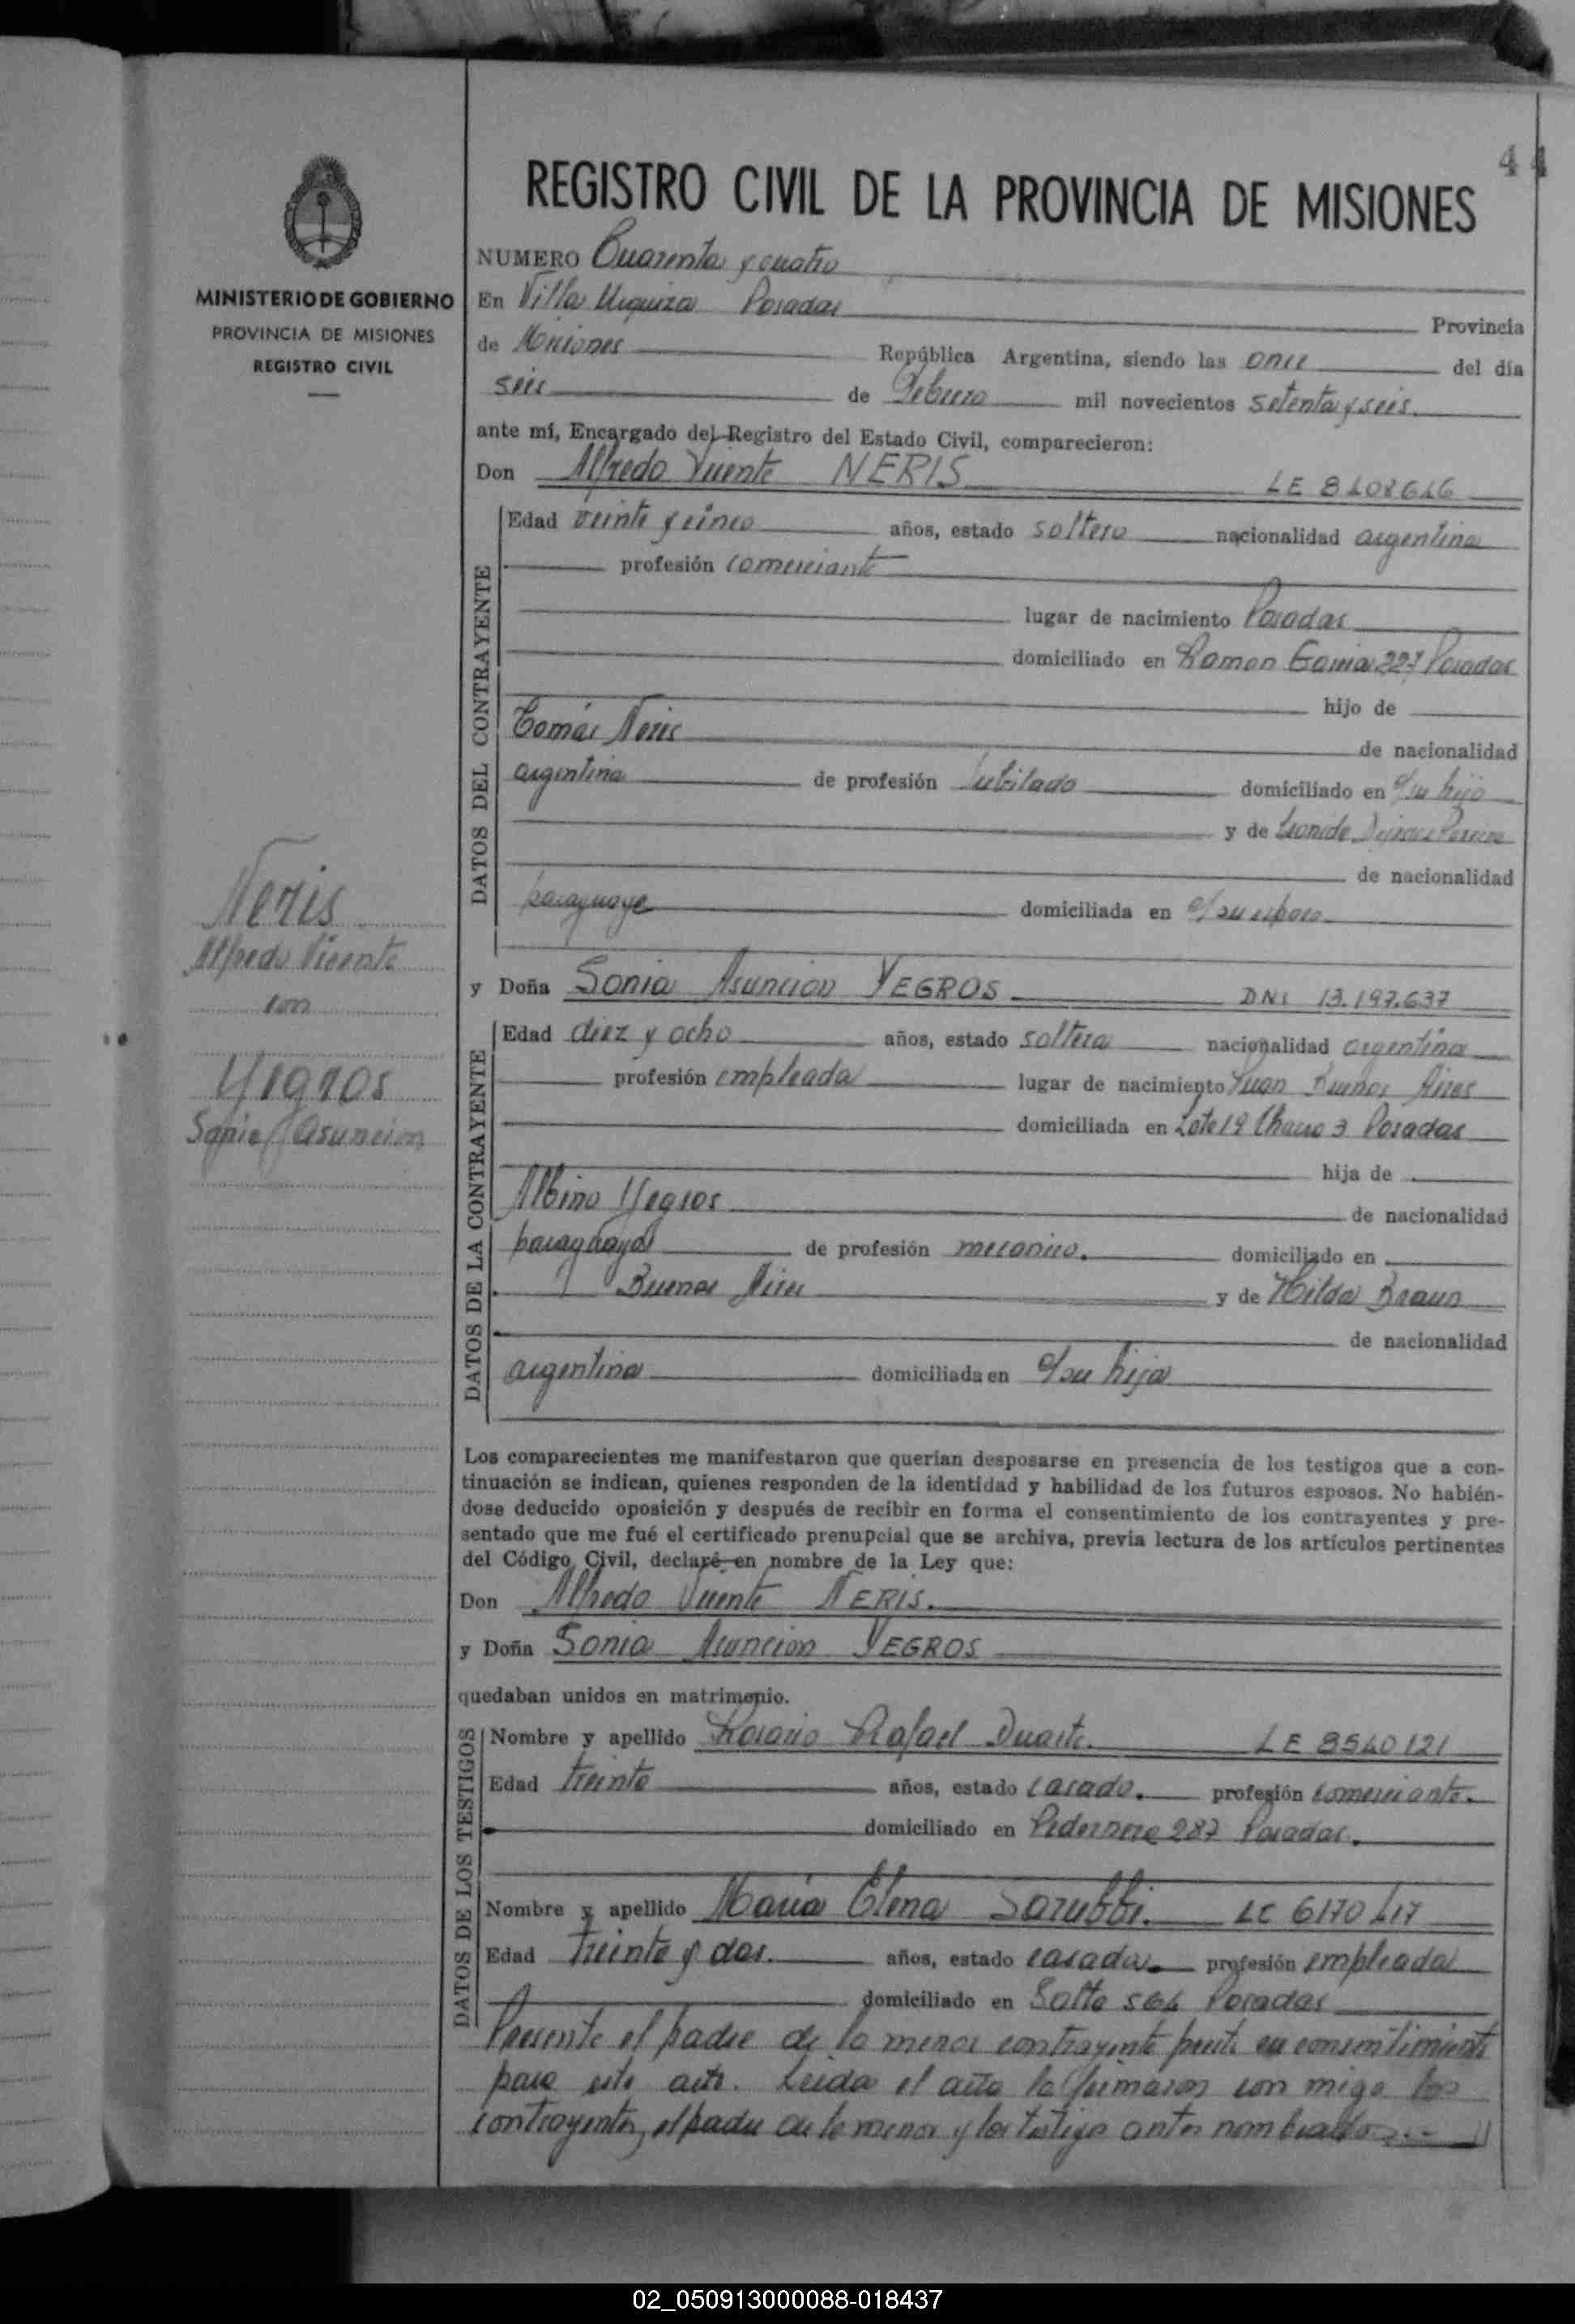 44
REGISTRO CIVIL DE LA PROVINCIA DE MISIONES
MINISTERIO DE GOBIERNO
PROVINCIA DE MISIONES
REGISTRO CIVIL
NUMERO Cuarenta y cuatro
En Villa Urquiza Posadas Provincia
de Misiones República Argentina, siendo las once del día
seis de Febrero mil novecientos setenta y seis
ante mí, Encargado del Registro del Estado Civil, comparecieron:
Don Alfredo Vicente NERIS LE 8408646
DATOS DEL CONTRAYENTE
Edad veinte y cinco años, estado soltero nacionalidad argentina
profesión comerciante
lugar de nacimiento Posadas
domiciliado en Ramon Garcia 227 Posadas
hijo de
Tomás Neris de nacionalidad
argentina de profesión Jubilado domiciliado en c/su hijo
y de
de nacionalidad
paraguaya domiciliada en c/su esposo
Neris
Alfredo Vicente
con
Yegros
Sonia Asuncion
y Doña Sonia Asuncion YEGROS DNI 13.197.637
DATOS DE LA CONTRAYENTE
Edad diez y ocho años, estado soltera nacionalidad argentina
profesión empleada lugar de nacimiento Buenos Aires
domiciliada en Lote 19 Chacra 3 Posadas
hija de
Albino Yegros de nacionalidad
paraguaya de profesión mecanico. domiciliado en
Buenos Aires y de Hilda Braun
de nacionalidad
argentina domiciliada en c/su hija
Los comparecientes me manifestaron que querían desposarse en presencia de los testigos que a con-
tinuación se indican, quienes responden de la identidad y habilidad de los futuros esposos. No habién-
dose deducido oposición y después de recibir en forma el consentimiento de los contrayentes y pre-
sentado que me fué el certificado prenupcial que se archiva, previa lectura de los artículos pertinentes
del Código Civil, declaré en nombre de la Ley que:
Don Alfredo Vicente NERIS.
y Doña Sonia Asuncion YEGROS
quedaban unidos en matrimonio.
DATOS DE LOS TESTIGOS
Nombre y apellido Rosario Rafael Duarte. LE 8540121
Edad treinta años, estado casado. profesión comerciante.
domiciliado en Pedernera 287 Posadas.
Nombre y apellido María Elena Sarubbi. LC 6170417
Edad treinta y dos. años, estado casada. profesión empleada
domiciliado en Salta 564 Posadas
Presente el padre de la menor contrayente presta su consentimiento
para este acto. Leida el acta la firmaron con migo los
contrayentes, el padre de la menor y los testigo antes nombrados.--
02_050913000088-018437